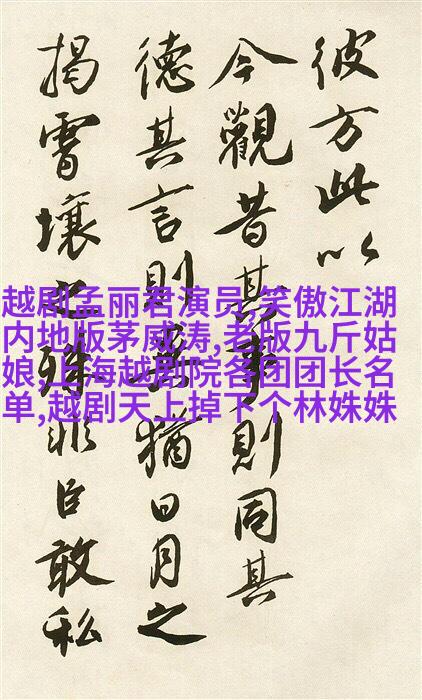 彼方此以
今觀昔其事則同其
德其言則無猶日月之
揭霄壤之殊非臣敢私
越剧孟丽君演员,笑傲江湖
内地版茅威涛,老版九斤姑
娘,上海越剧院各团团长名
单,越剧天上掉下个林姝姝